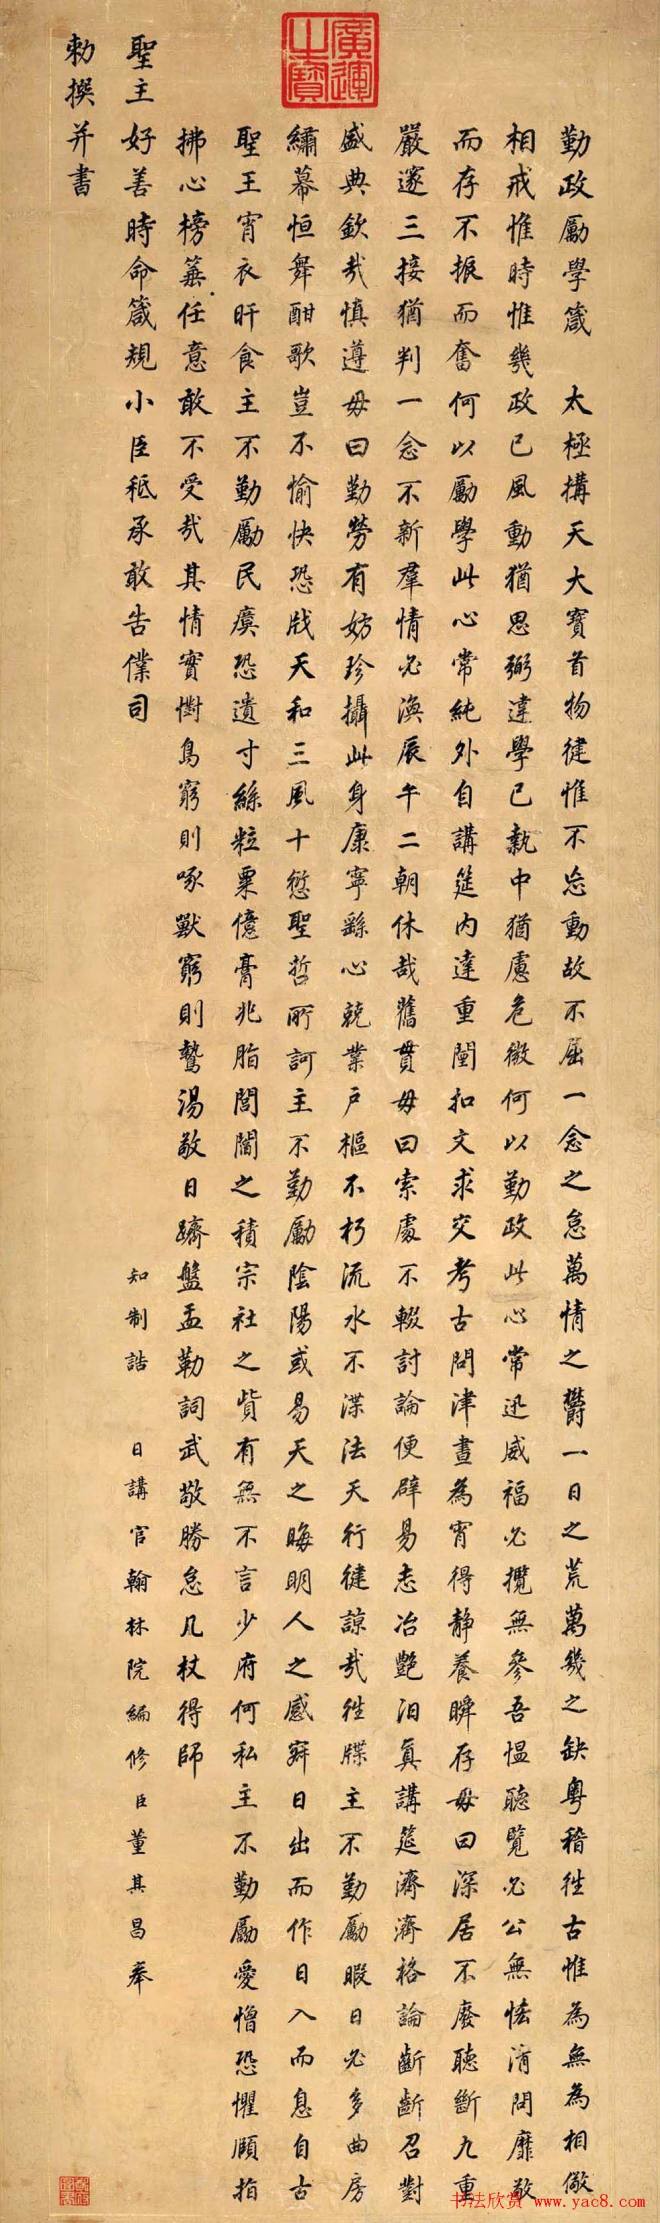 廣運之寶
勤政勵學箴　太極構天大寶首物健惟不息動故不屈一念之怠萬情之鬱一日之荒萬幾之缺粵稽往古惟為無為相儆
相戒惟時惟幾政已風動猶思弼違學已執中猶慮危微何以勤政此心常迅威福必攬無參吾愠聽覽必公無怯清問靡敬
而存不振而奮何以勵學此心常純外自講筵內達重闈扣文求交考古問津晝為宵得靜養瞬存毋曰深居不廢聽斷九重
嚴邃三接猶判一念不新羣情必渙辰午二朝休哉舊貫毋曰索處不輟討論便辟易志冶艷汩真講筵濟濟格論齗齗召對
盛典欽哉慎遵毋曰勤勞有妨珍攝此身康寧繇心兢業戶樞不朽流水不渫法天行健諒哉往牒主不勤勵暇日必多曲房
繡幕恒舞酣歌豈不愉快恐戕天和三風十愆聖哲所訶主不勤勵陰陽或易天之晦明人之感寤日出而作日入而息自古
聖王宵衣旰食主不勤勵民瘼恐遺寸絲粒粟億膏兆脂閭閻之積宗社之貲有無不言少府何私主不勤勵愛憎恐懼頤指
拂心榜箠任意敢不受哉其情實懟鳥窮則啄獸窮則鷙湯敬日躋盤盂勒詞武敬勝怠几杖得師
聖主好善時命箴規小臣秪承敢告僕司
知制誥　日講官翰林院編修臣董其昌奉
勅撰并書
书法欣赏 www.yac8.com